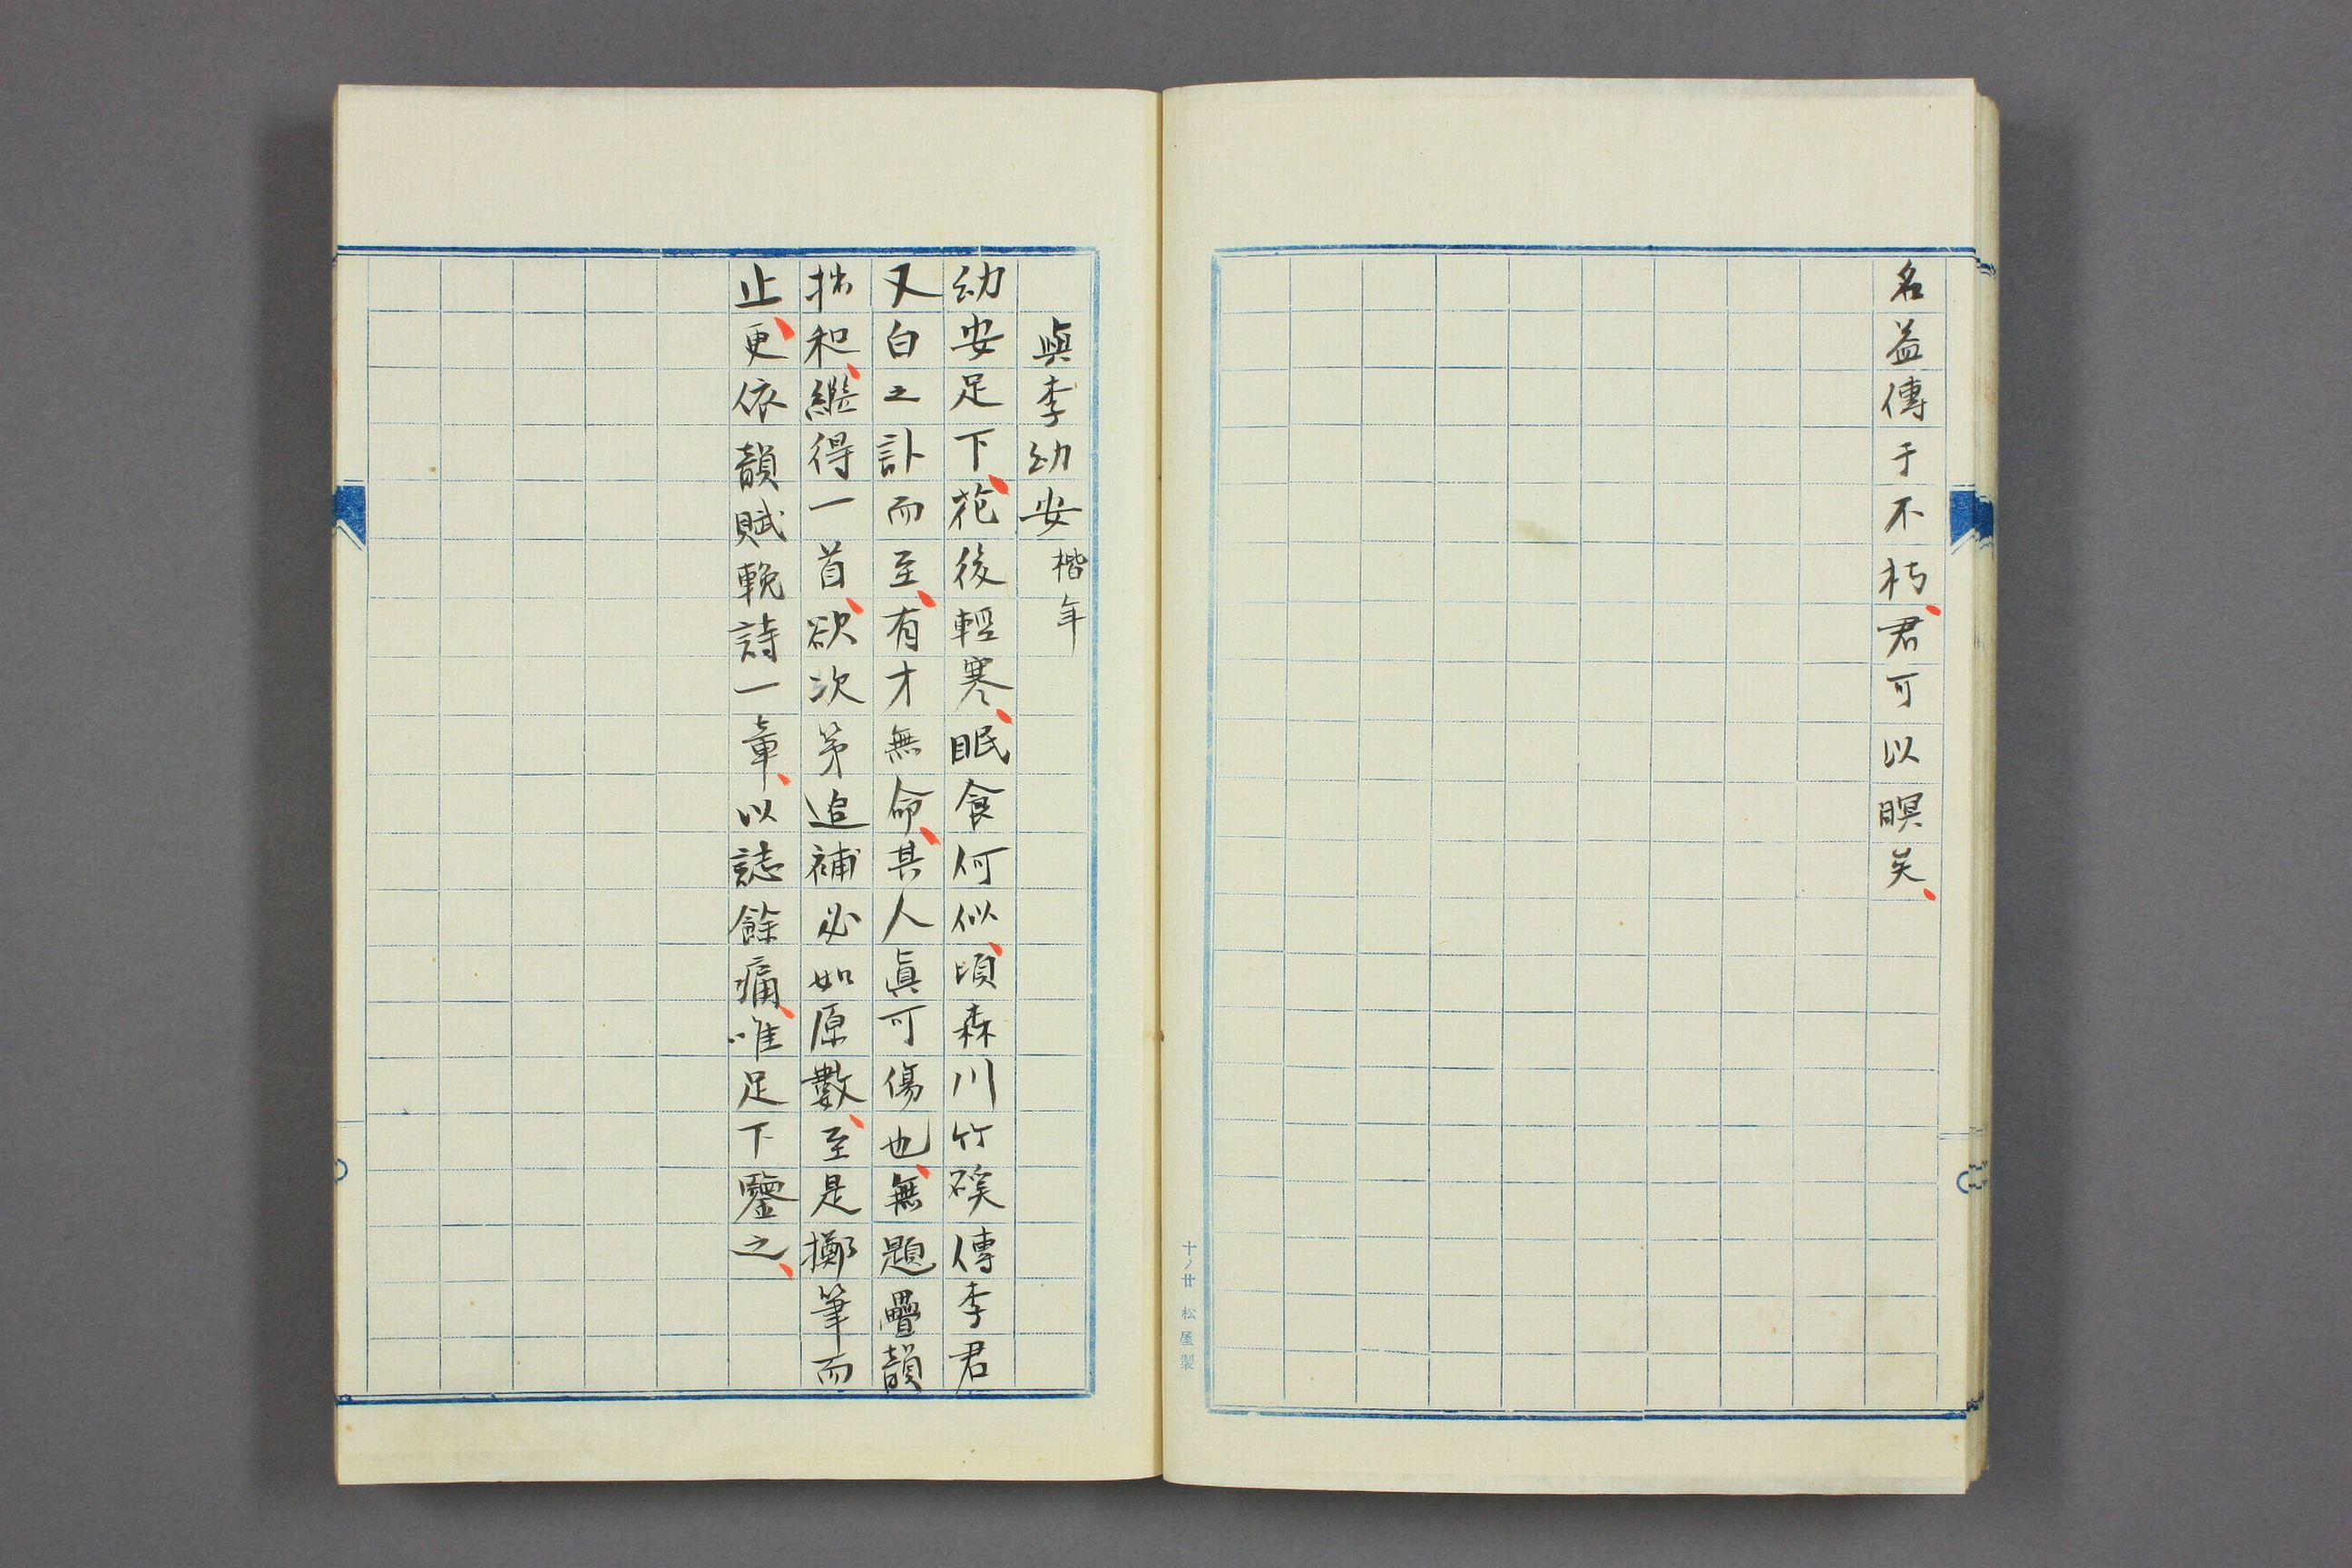 名益傳于不朽、君可以瞑矣、
十ノ廿 松屋製
與李幼安 楷年
幼安足下、花後輕寒、眠食何似、頃森川竹磎傳李君
又白之訃而至、有才無命、其人眞可傷也、無題疊韻
拙和、繼得一首、欲次第追補必如原數、至是擲筆而
止、更依韻賦輓詩一章、以誌餘痛、唯足下鑒之、